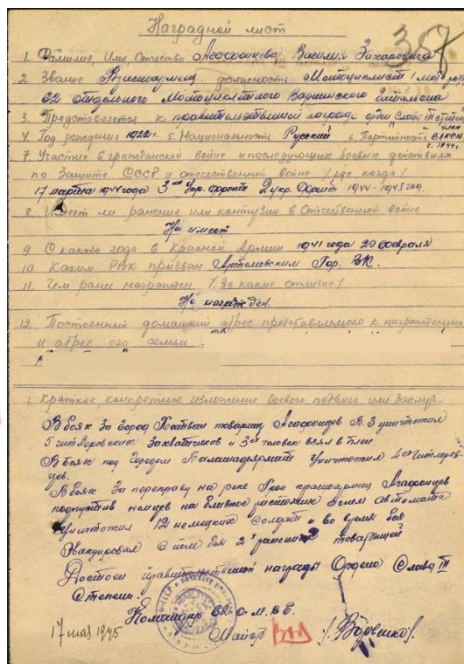 Наградной лист
387
1. Фамилия, Имя, Отчество Агафонцева Василия Захаровича
2. Звание Красноармеец должность Мотоциклист
62 отдельного Мотоциклетного батальона
3. Представляется к правительственной награде орден Слава III степени
4. Год рождения 1922г. 5. Национальность Русский 6. Партийность член ВЛКСМ
7. Участие в гражданской войне и последующих боевых действиях
по защите СССР и отечественной войне (где когда)
17 марта 1944 года 3им Укр. фронт 2 укр. Фронт 1944-1945 год.
8. Имеет ли ранение или контузии в Отечественной войне
Не имеет
9. С какого года в Красной Армии 1941 года 20 февраля
10. Каким РВК призван Артемовским Гор. ВК.
11. Чем ранее награжден (за какие отличия)
Не награжден.
12. Постоянный домашний адрес представляемого к награждению
и адрес его семьи.
1. Краткое, конкретное изложение боевого подвига или заслуг.
В боях за город Хатван товарищ Агафонцев В.З уничтожил
5 гитлеровских захватчиков и 3ех человек взял в плен
В боях под городом Балашадьярмат Уничтожил 4ех гитлеров-
цев.
В боях за переправу на реке Грон красноармеец Агафонцев
подпустив немцев на близкое растояние огнем автомата
Уничтожил 12 немецких солдат и во время боя
Эвакуировал с поля боя 2х раненых товарищей
Достоин правительственной награды Ордена Слава III
Степени.
Командир 62 О.М.В.Б.
17 мая 1945
Майор